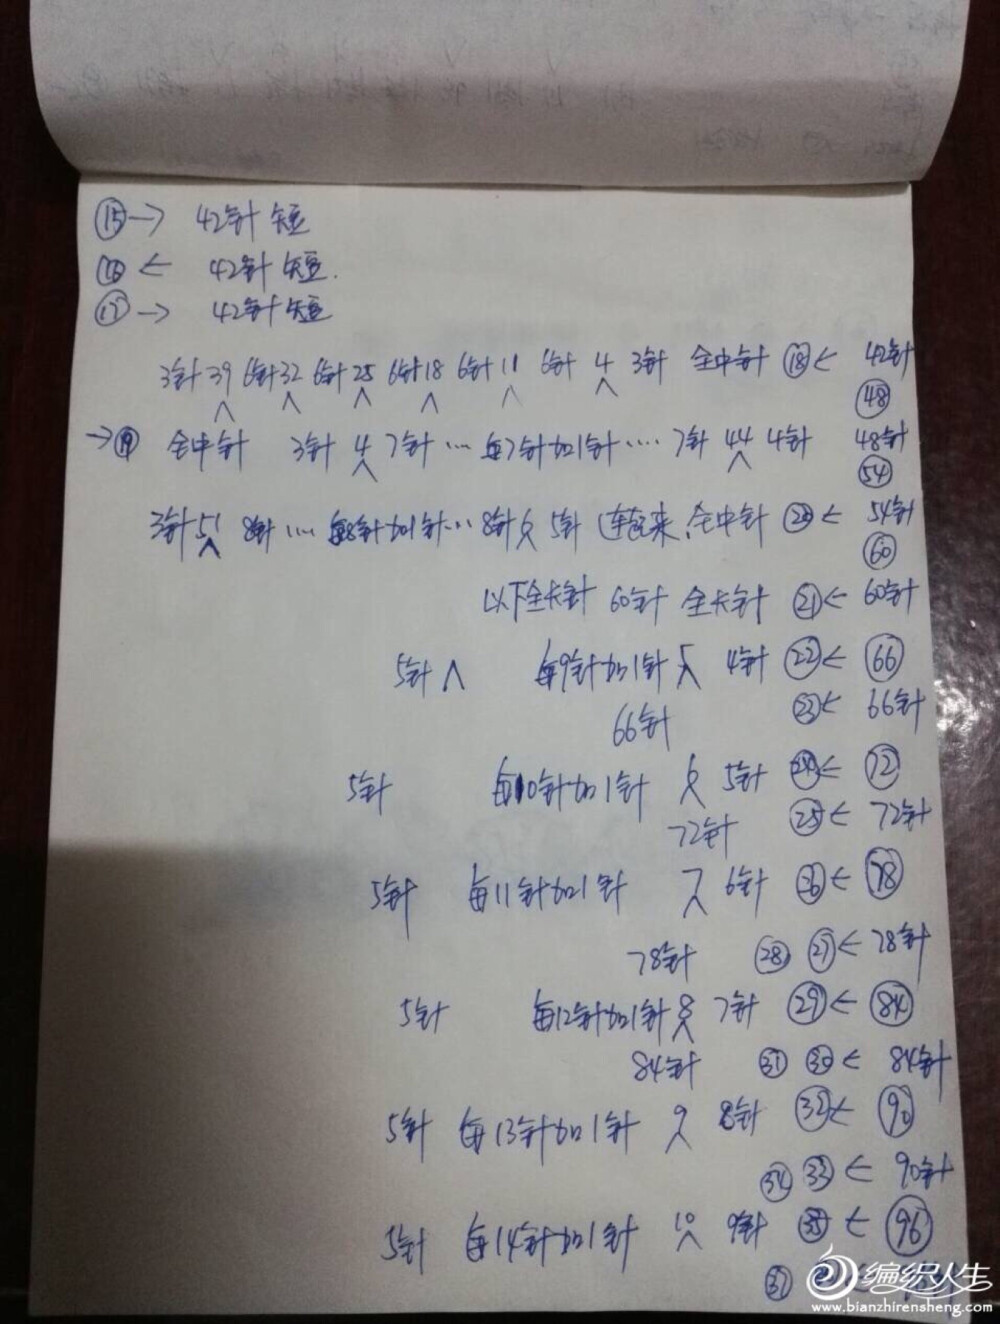 ⑮→ 42针 短
⑯← 42针 短.
⑰→ 42针 短
3针 39 6针 32 6针 25 6针 18 6针 11 6针 4 3针 全中针 ⑱← 42针
㊽
→⑲ 全中针 3针 4 7针 … 每7针加1针 … 7针 44 4针 48针
54
3针 51 8针 … 每8针加1针… 8针 6 5针 连起来,全中针 ⑳← 54针
60
以下全长针 60针 全长针 ㉑← 60针
5针 ∧ 每9针加1针 5 4针 ㉒← 66
66针 ㉓← 66针
5针 每10针加1针 6 5针 ㉔← 72
72针 ㉕← 72针
5针 每11针加1针 7 6针 ㉖← 78
78针 ㉘ ㉗← 78针
5针 每12针加1针 8 7针 ㉙← 84
84针 ㉛ ㉚← 84针
5针 每13针加1针 9 8针 ㉜← 90
㉞ ㉝← 90针
5针 每14针加1针 10 9针 ㉟← 96
㊲
编织人生
www.bianzhirensheng.com